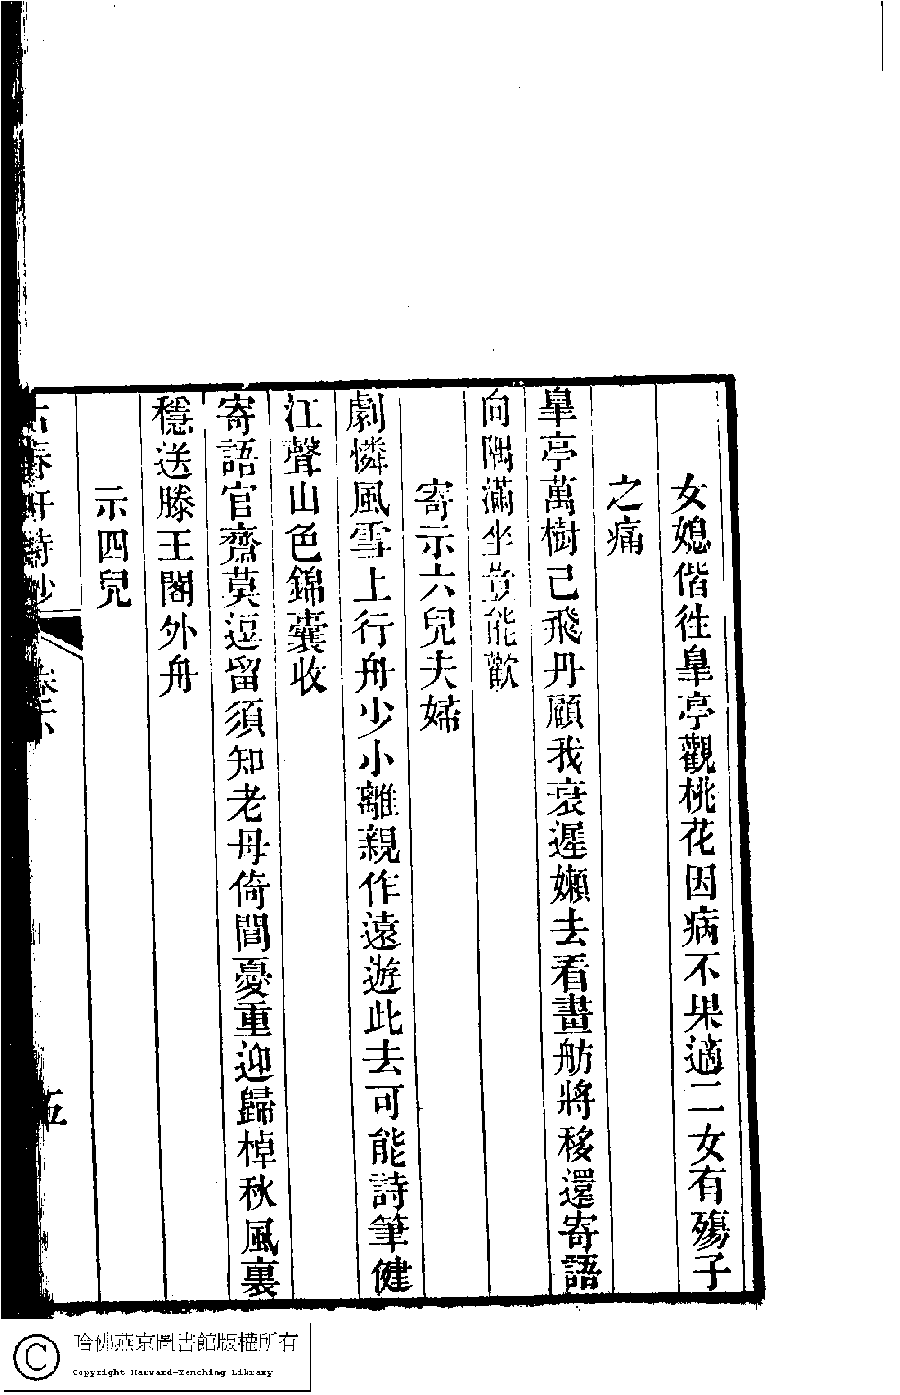 女媳偕往皐亭觀桃花因病不果適二女有殤子
之痛
皐亭萬樹已飛丹顧我衰遲嬾去看畫舫將移還寄語
向隅滿坐豈能歡
寄示六兒夫婦
劇憐風雪上行舟少小離親作遠遊此去可能詩筆健
江聲山色錦囊收
寄語官齋莫逗留須知老母倚閭憂重迎歸棹秋風裏
穩送滕王閣外舟
示四兒
古春軒詩鈔
卷下
五
哈佛燕京圖書館版權所有
Copyright Harvard-Yenching Library